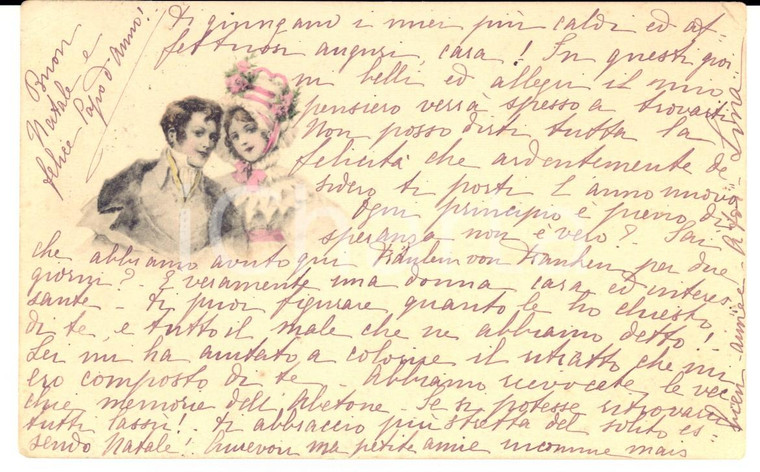 Buon
Natale e
felice Capo d'anno!
Ti giungano i miei più caldi ed af-
fettuosi auguri cara! In questi gior
ni belli ed allegri il mio
pensiero verrà spesso a trovarti
Non posso dirti tutta la
felicità che ardentemente de
sidero ti porti l'anno nuovo
ogni principio è pieno di
speranza non è vero? Sai
che abbiamo avuto qui Fräulein von per due
giorni? È veramente una donna cara ed interes
sante - ti puoi figurare quanto le ho chiesto
di te, e tutto il male che ne abbiamo detto!
Lei mi ha aiutato a colorire il ritratto che mi
ero composto di te - Abbiamo rievocate le vec
chie memorie dell'Abetone. Se si potesse ritrovarci
tutti lassù! ti abbraccio più stretta del solito es
sendo Natale! Aurevoir ma petite amie inconnue mais
bien aimée - A toi - Tina -